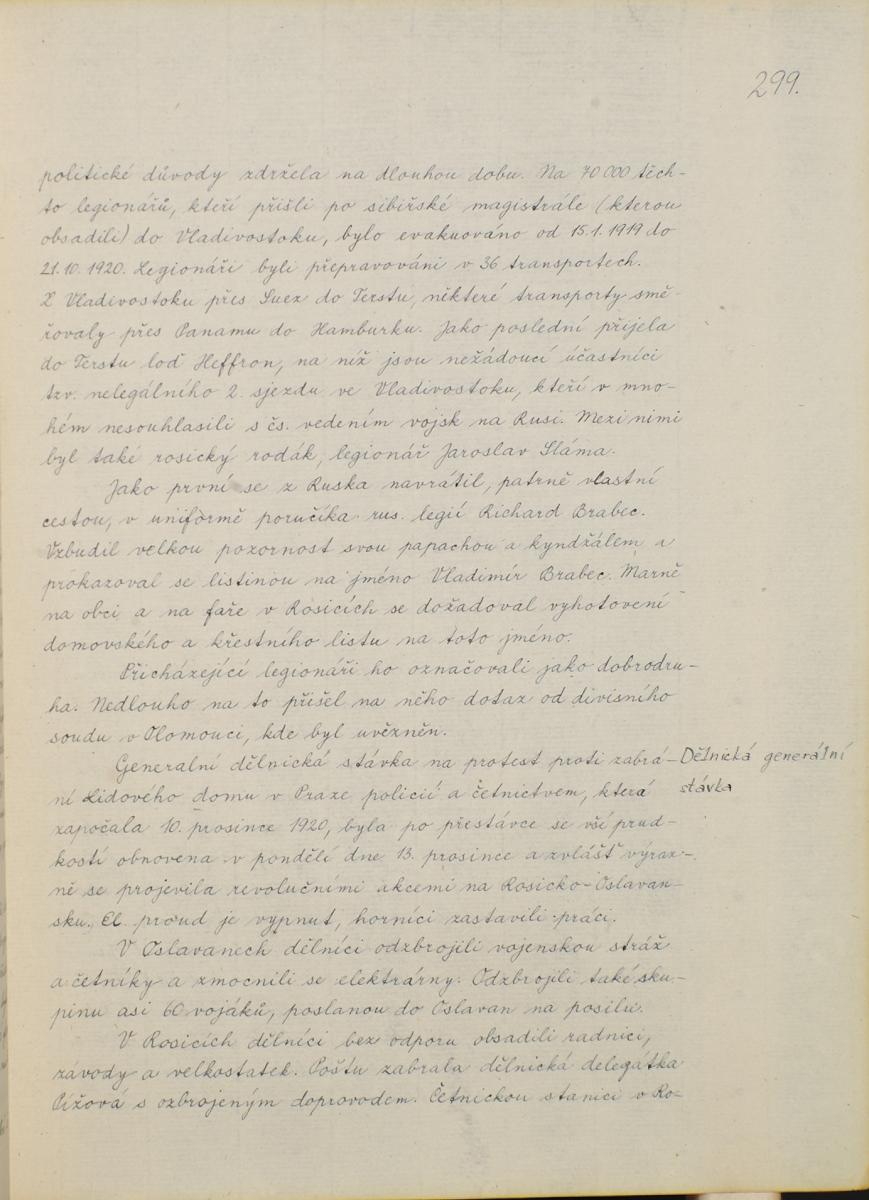 299.
politické důvody zdržela na dlouhou dobu. Na 70 000 těch-
to legionářů, kteří přišli po sibiřské magistrále (kterou
obsadili) do Vladivostoku, bylo evakuováno od 15.1.1919 do
21.10.1920. Legionáři byli přepravováni v 36 transportech.
Z Vladivostoku přes Suez do Terstu, některé transporty smě-
řovaly přes Panamu do Hamburku. Jako poslední přijela
do Terstu loď Heffron, na níž jsou nežádoucí účastníci
tzv. nelegálního 2. sjezdu ve Vladivostoku, kteří v mno-
hém nesouhlasili s čs. vedením vojsk na Rusi. Mezi nimi
byl také rosický rodák, legionář Jaroslav Sláma.
Jako první se z Ruska navrátil, patrně vlastní
cestou, v uniformě poručíka rus. legií Richard Brabec.
Vzbudil velkou pozornost svou papachou a kyndžálem a
prokazoval se listinou na jméno Vladimír Brabec. Marně
na obci a na faře v Rosicích se dožadoval vyhotovení
domovského a křestního listu na toto jméno.
Přicházející legionáři ho označovali jako dobrodru-
ha. Nedlouho na to přišel na něho dotaz od divisního
soudu v Olomouci, kde byl uvězněn.
Generalní dělnická stávka na protest proti zabrá- Dělnická generální
ní Lidového domu v Praze policií a četnictvem, která stávka
započala 10. prosince 1920, byla po přestávce se vší prud-
kostí obnovena v pondělí dne 13. prosince a zvlášť výraz-
ně se projevila revolučními akcemi na Rosicko-Oslavan-
sku. El. proud je vypnut, horníci zastavili práci.
V Oslavanech dělníci odzbrojili vojenskou stráž
a četníky a zmocnili se elektrárny. Odzbrojili také sku-
pinu asi 60 vojáků, poslanou do Oslavan na posilu.
V Rosicích dělníci bez odporu obsadili radnici,
závody a velkostatek. Poštu zabrala dělnická delegátka
Pížová s ozbrojeným doprovodem. Četnickou stanici v Ro-